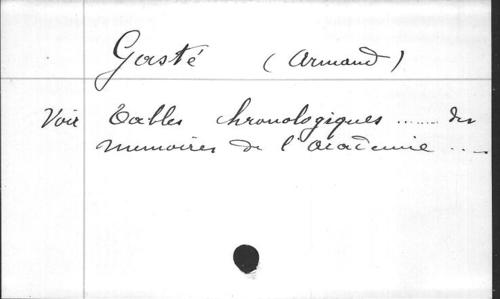 Gasté (Armand)
Voir Tables chronologiques ........ des
Memoires de l'Academie ....